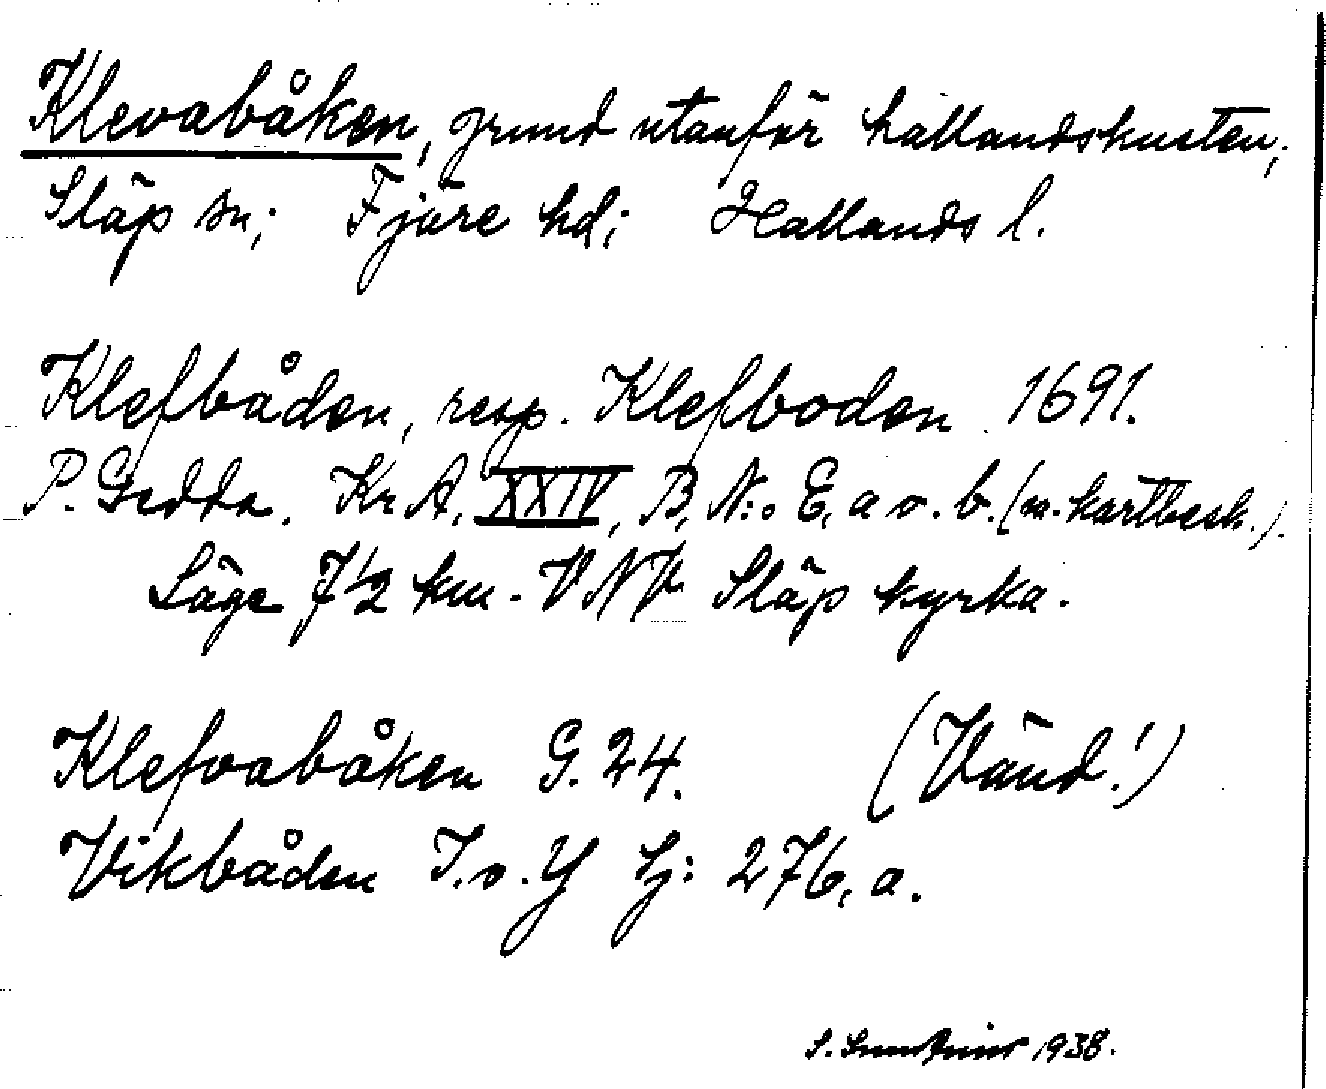 Klevabåken, grund utanför hallandskusten;
Släp sn; Fjäre hd; Hallands l.
Klefbåden, resp. Klefboden 1691.
P. Gedda. Kr A, XXIV, B, N:o E, a o. b. (m. kartbesk.).
Läge 7 1/2 km - VNV Släp kyrka.
Klefvabåken G. 24. (Vänd!)
Vikbåden I. o. Y Hj: 276, a.
S. 1938.